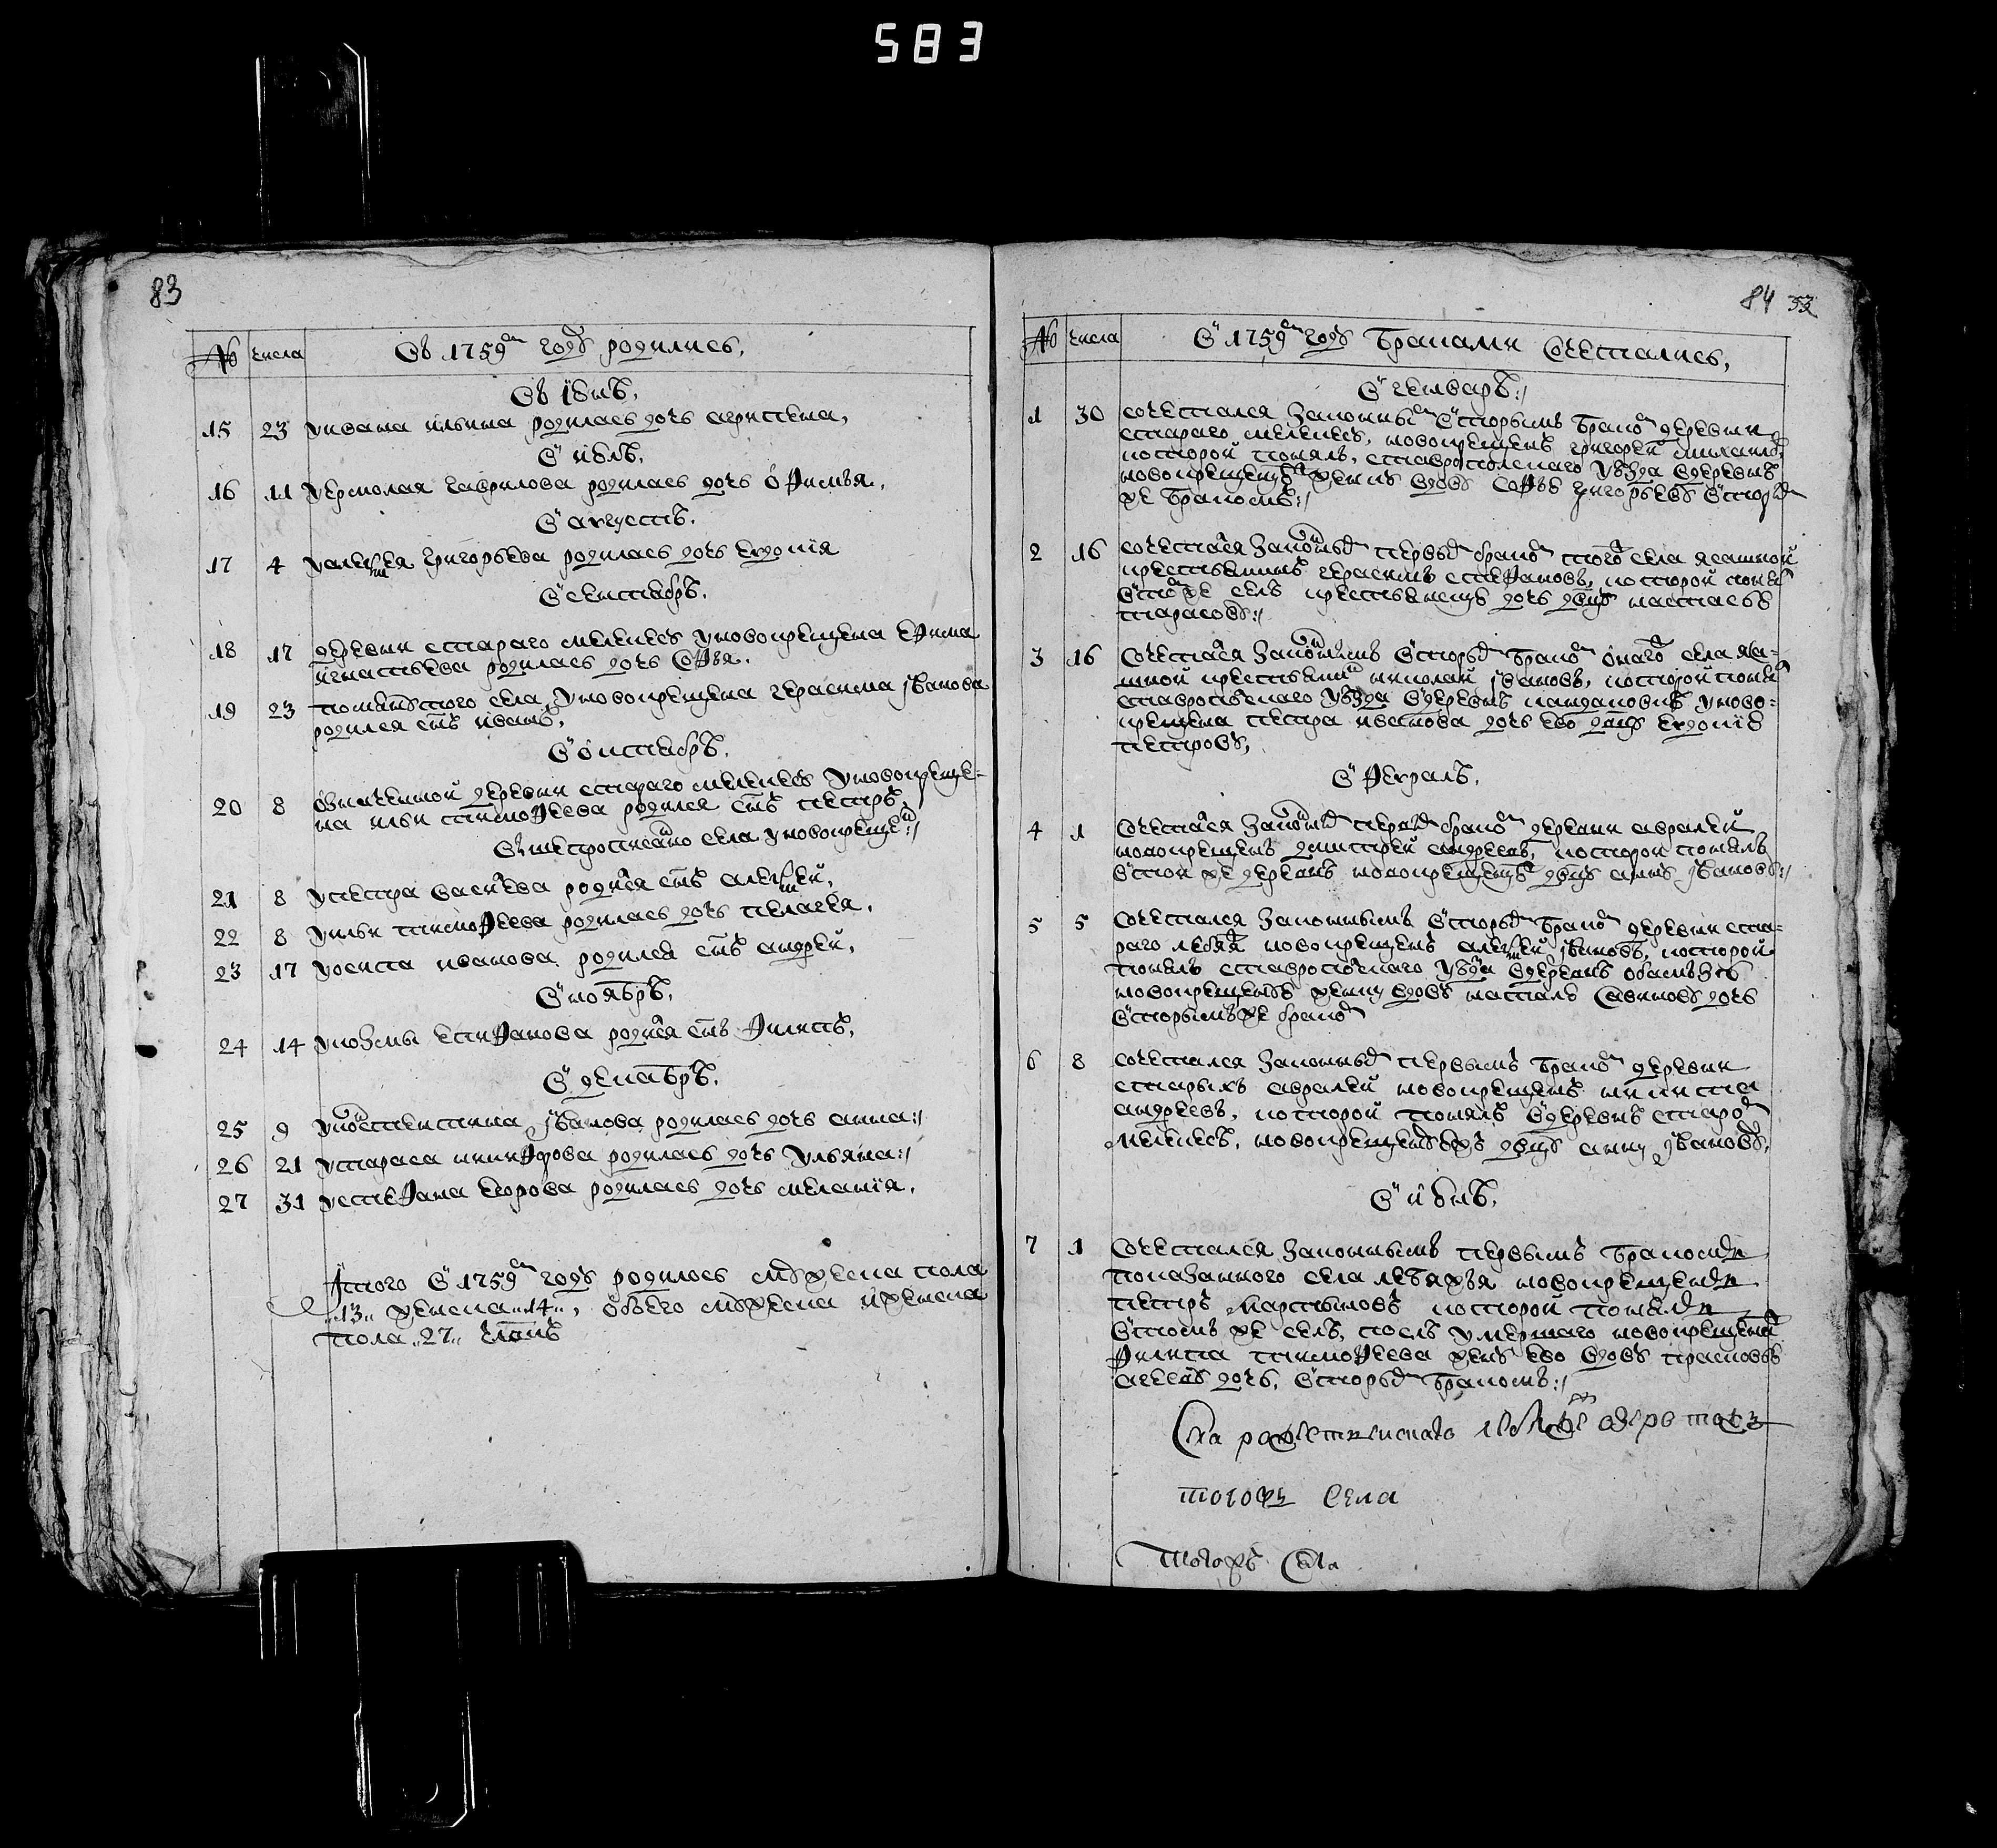 583
83
№ числа Въ 1759м году родилис,
Въ июнѣ,
15 23 у ивана ильина родилас дочь агрипена,
В июлѣ,
16 11 у ермолая гаврилова родилас дочь офимья,
В августѣ,
17 4 у алексея григорьева родилас дочь евдокия
В сентябрѣ,
18 17 деревни стараго мелекес у новокрещена ефима
игнатьева родилас дочь софья,
19 23 помянутого села, у новокрещена герасима иванова
родился сынъ иванъ,
В октябрѣ,
20 8 означенной деревни стараго мелекес у новокреще=
на ильи тимофеева родился сынъ петръ,
Рождественского села у новокрещен:/
21 8 у петра василева родился сынъ алексей,
22 8 у ильи тимофеева родилас дочь пелагея,
23 17 у осипа иванова родился сынъ андрей,
В ноябрѣ,
24 14 у козмы епифанова родился сынъ филипъ,
В декабрѣ,
25 9 у констентина иванова родилас дочь анна:/
26 21 у тараса никифорова родилас дочь ульяна:/
27 31 у стефана егорова родилас дочь мелания,
Итого в 1759м году родилос мужеска пола
13 женска 14, обоего мужеска и женска
пола 27 члвкъ
84 53
№ числа В 1759м году браками сочеталис,
В генварѣ:/
1 30 сочетался законным вторымъ браком деревни
стараго мелекес, новокрещенъ григорей
которой понялъ, ставропольского уѣзда в деревнѣ
новокрещенскую жену вдову софью григорьеву вторым
же бракомъ:/
2 16 сочетался законным первым браком того села ясашной
крестьянинъ герасимъ стефановъ, которой понял
в том же селѣ крестьянску дочь девку настасью
тарасову:/
3 16 Сочетался законнымъ вторым браком онаго села яса=
шной крестьянин николай ивановъ, которой понял
ставропольского уѣзда в деревнѣ кандаковкѣ у ново=
крещена петра иванова дочь ево девку евдокию
петрову,
В февралѣ,
4 1 Сочетался законным первым браком деревни авралей
новокрещенъ дмитрей андреевъ, которой понялъ
в той же деревнѣ новокрещенскую девку анну иванову:/
5 5 Сочетался законнымъ вторым браком деревни ста=
раго новокрещенъ алексей ивановъ, которой
понялъ ставропольского уѣзда в деревнѣ
новокрещенску жену вдову наталью савинову дочь
вторымъ же браком
6 8 сочетался законным первымъ браком деревни
старыхъ авралей новокрещенъ никита
андреевъ, которой понялъ в деревнѣ старом
мелекес, новокрещенскую девку анну иванову,
В июнѣ,
7 1 Сочетался законнымъ первымъ бракомъ
показанного села лебяжья новокрещенъ
петръ мартыновъ которой понялъ
в томъ же селѣ, послѣ умершаго новокрещена
филипа тимофеева жену ево вдову прасковью
дочь, вторым бракомъ:/
тогожъ села
тогожъ села